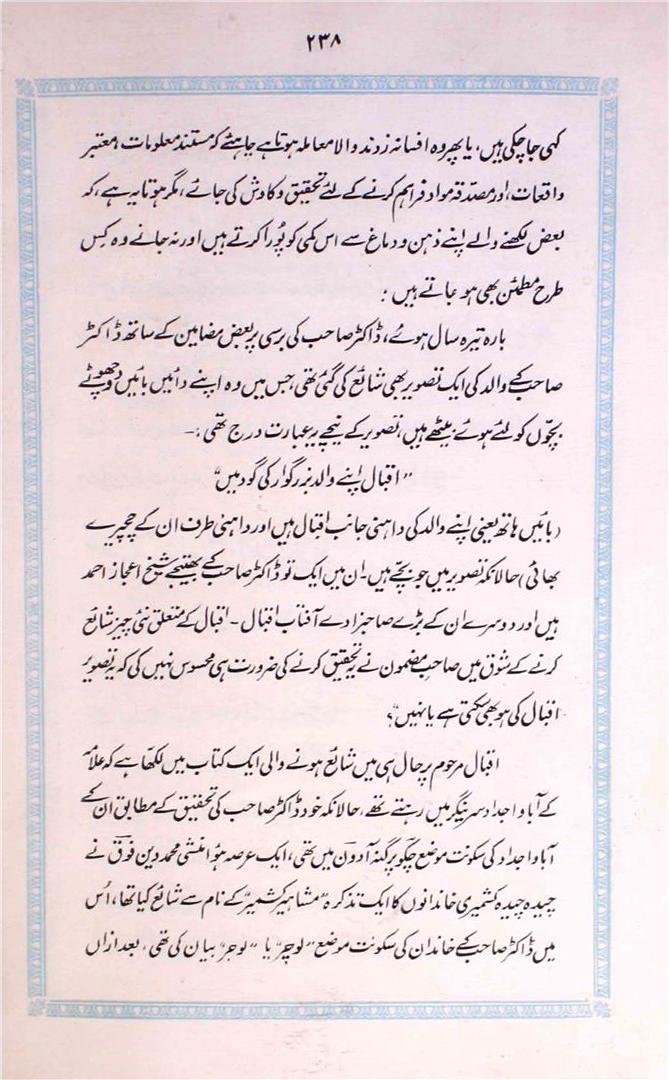 ۲۳۸
کہی جا چکی ہیں، یا پھر وہ افسانہ زدند والا معاملہ ہوتا ہے چاہئے کہ مستند معلومات، معتبر
واقعات، اور مصدقہ مواد فراہم کرنے کے لئے تحقیق و کاوش کی جائے، مگر ہوتا یہ ہے، کہ
بعض لکھنے والے اپنے ذہن و دماغ سے اس کمی کو پُورا کرتے ہیں اور نہ جانے وہ کِس
طرح مطمئن بھی ہو جاتے ہیں ؛
بارہ تیرہ سال ہوئے، ڈاکٹر صاحب کی برسی پر بعض مضامین کے ساتھ ڈاکٹر
صاحب کے والد کی ایک تصویر بھی شائع کی گئی تھی جس میں وہ اپنے دائیں بائیں دو چھوٹے
بچّوں کو لئے ہوئے بیٹھے ہیں، تصویر کے نیچے یہ عبارت درج تھی :-
"اقبال اپنے والد بزرگوار کی گود میں"
(بائیں ہاتھ یعنی اپنے والد کی داہنی جانب اقبال ہیں اور داہنی طرف ان کے چچیرے
بھائی) حالانکہ تصویر میں جو بچے ہیں۔ ان میں ایک تو ڈاکٹر صاحب کے بھتیجے شیخ اعجاز احمد
ہیں اور دوسرے ان کے بڑے صاحبزادے آفتاب اقبال - اقبال کے متعلق نئی چیز شائع
کرنے کے شوق میں صاحبِ مضمون نے یہ تحقیق کرنے کی ضرورت ہی محسوس نہیں کی کہ یہ تصویر
اقبال کی ہو بھی سکتی ہے یا نہیں"؟
اقبال مرحوم پر حال ہی میں شائع ہونے والی ایک کتاب میں لکھا ہے کہ علامہ
کے آبا و اجداد سرینگر میں رہتے تھے، حالانکہ خود ڈاکٹر صاحب کی تحقیق کے مطابق ان کے
آبا و اجداد کی سکونت موضع چکو پرگنہ آدون میں تھی، ایک عرصہ ہُوا منشی محمد دین فوق نے
چیدہ چیدہ کشمیری خاندانوں کا ایک تذکرہ "مشاہیر کشمیر" کے نام سے شائع کیا تھا، اُس
میں ڈاکٹر صاحب کے خاندان کی سکونت موضع "لوچر" یا "لوجر" بیان کی تھی، بعد ازاں